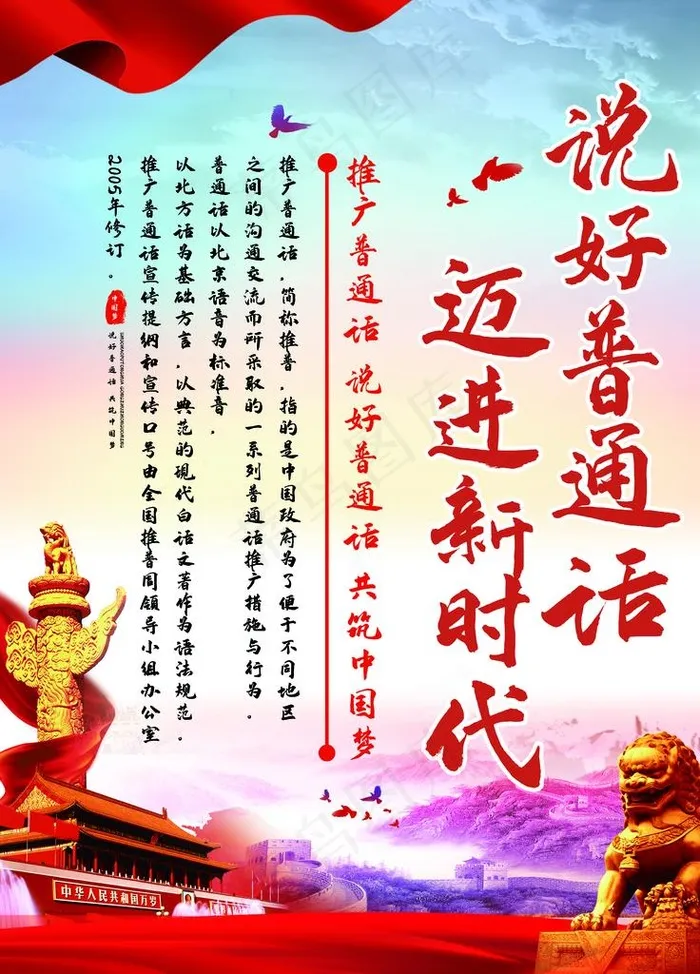 说好普通话
迈进新时代
推广普通话 说好普通话 共筑中国梦
推广普通话,简称推普,指的是中国政府为了便于不同地区
之间的沟通交流而所采取的一系列普通话推广措施与行为。
普通话以北京语音为标准音,
以北方话为基础方言,以典范的现代白话文著作为语法规范。
推广普通话宣传提纲和宣传口号由全国推普周领导小组办公室
2005年修订。
中国梦
说好普通话 共筑中国梦
中华人民共和国万岁